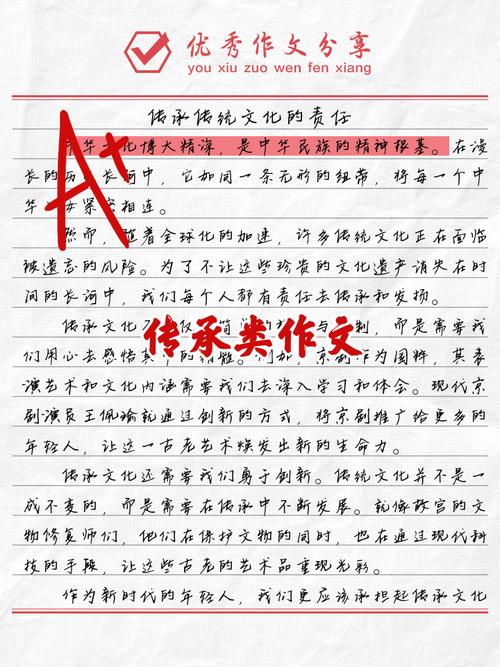 优秀作文分享
you xiu zuo wen fen xiang
传承传统文化的责任
A+
华文化博大精深，是中华民族的精神根基。在漫
长的历史长河中，它如同一条无形的纽带，将每一个中
华儿女紧密相连。
然而，随着全球化的加速，许多传统文化正在面临
被遗忘的风险。为了不让这些珍贵的文化遗产消失在时
间的长河中，我们每个人都有责任去传承和发扬。
传承文化不仅 简 与 制，而是需要我
传承类作文
们用心去感悟其 。例如，京剧作为国粹，其表
演艺术和文化内涵需要我们去深入学习和体会。现代京
剧演员王佩瑜就通过创新的方式，将京剧推广给更多的
年轻人，让这一古老艺术焕发出新的生命力。
传承文化还需要我们勇于创新。传统文化并不是一
成不变的，而是需要在传承中不断发展。就像故宫的文
物修复师们，他们在保护文物的同时，也在通过现代科
技的手段，让这些古老的艺术品重现光彩。
作为新时代的年轻人，我们更应该承担起传承文化